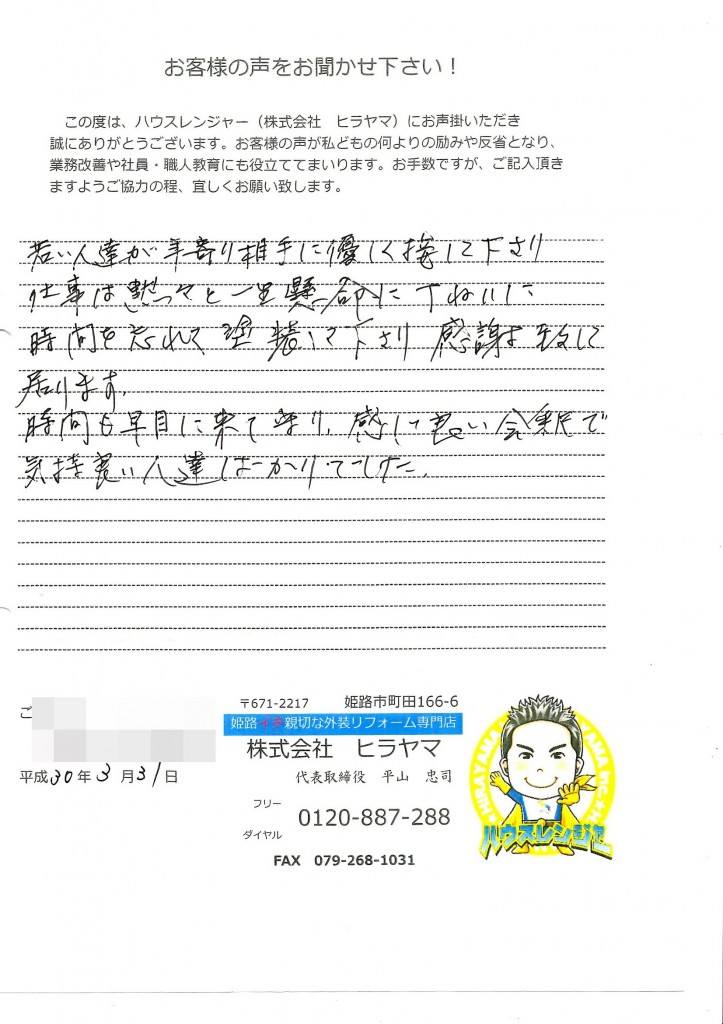 お客様の声をお聞かせ下さい！
この度は、ハウスレンジャー（株式会社　ヒラヤマ）にお声掛いただき
誠にありがとうございます。お客様の声が私どもの何よりの励みや反省となり、
業務改善や社員・職人教育にも役立ててまいります。お手数ですが、ご記入頂き
ますようご協力の程、宜しくお願い致します。
若い人達が年寄り相手に優しく接して下さり
仕事は黙々と一生懸命にていねいに
時間を忘れて塗装して下さり感謝致して
居ります。
時間も早目に来て下り、感じ良い会釈で
気持良い人達ばかりでした。
ご
平成30年3月31日
〒671-2217　姫路市町田166-6
姫路イチ親切な外装リフォーム専門店
株式会社　ヒラヤマ
代表取締役　平山　忠司
フリー
ダイヤル
0120-887-288
FAX　079-268-1031
HIRAYAMA
ハウスレンジャー